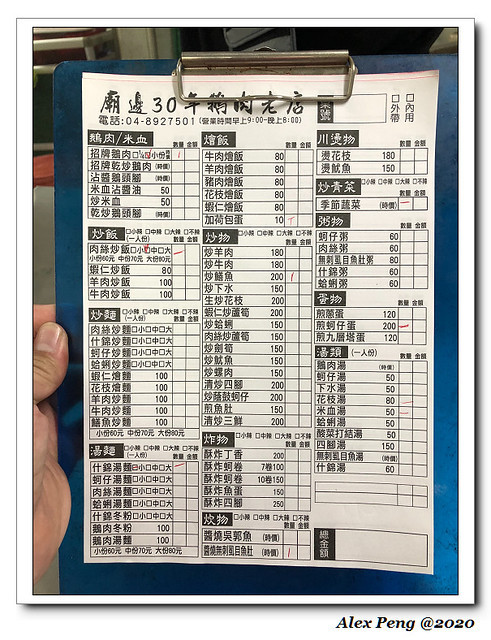 廟邊30年鵝肉老店
電話:04-8927501(營業時間早上9:00-晚上8:00)
桌號
□外帶 □內用
鵝肉/米血 數量 金額
招牌鵝肉
招牌乾炒鵝肉 (時價)
沾醬鵝頭腳 (時價)
米血沾醬油 50
炒米血 50
乾炒鵝頭腳 (時價)
炒飯 □小辣 □中辣 □大辣 □不辣
(一人份) 數量 金額
肉絲炒飯□小□中□大
小份60元 中份70元 大份80元
蝦仁炒飯 80
羊肉炒飯 100
牛肉炒飯 100
炒麵 □小辣 □中辣 □大辣 □不辣
(一人份) 數量 金額
肉絲炒麵□小□中□大
什錦炒麵□小□中□大
蚵仔炒麵□小□中□大
蛤蜊炒麵□小□中□大
蝦仁燴麵 100
花枝燴麵 100
羊肉炒麵 100
牛肉炒麵 100
鱔魚炒麵 100
小份60元 中份70元 大份80元
湯麵 □小辣 □中辣 □大辣 □不辣
(一人份) 數量 金額
什錦湯麵□小□中□大
蚵仔湯麵□小□中□大
肉絲湯麵□小□中□大
蛤蜊湯麵□小□中□大
什錦冬粉□小□中□大
鵝肉冬粉 100
鵝肉湯麵 100
小份60元 中份70元 大份80元
燴飯 數量 金額
牛肉燴飯 80
羊肉燴飯 80
豬肉燴飯 80
花枝燴飯 80
蝦仁燴飯 80
加荷包蛋 10
炒物 □小辣 □中辣 □大辣 □不辣
數量 金額
炒羊肉 180
炒牛肉 180
炒鱔魚 200
炒下水 150
生炒花枝 200
蝦仁炒蘆筍 200
炒蛤蜊 150
肉絲炒蘆筍 150
炒劍筍 150
炒魷魚 150
炒螺肉 150
清炒四腳 200
炒蔭豉蚵仔 200
煎魚肚 150
清炒三鮮 200
炸物 □小辣 □中辣 □大辣 □不辣
數量 金額
酥炸丁香 200
酥炸蚵卷 7卷100
酥炸蚵卷 10卷150
酥炸魚蛋 150
酥炸四腳 250
炊物 □小辣 □中辣 □大辣 □不辣
數量 金額
醬燒吳郭魚 (時價)
醬燒無刺虱目魚肚 (時價)
川燙物 數量 金額
燙花枝 180
燙魷魚 150
炒青菜 □小辣 □中辣 □大辣 □不辣
數量 金額
季節蔬菜 (時價)
粥物 數量 金額
蚵仔粥 60
肉絲粥 60
無刺虱目魚肚粥 80
什錦粥 60
蛤蜊粥 60
蛋物 數量 金額
煎蔥蛋 120
煎蚵仔蛋 200
煎九層塔蛋 120
湯類 (一人份) 數量 金額
鵝肉湯 (時價)
蚵仔湯 50
下水湯 50
花枝湯 80
米血湯 50
蛤蜊湯 50
酸菜打結湯 50
四腳湯 150
無刺虱目魚湯 (時價)
什錦湯 60
總金額
Alex Peng @2020